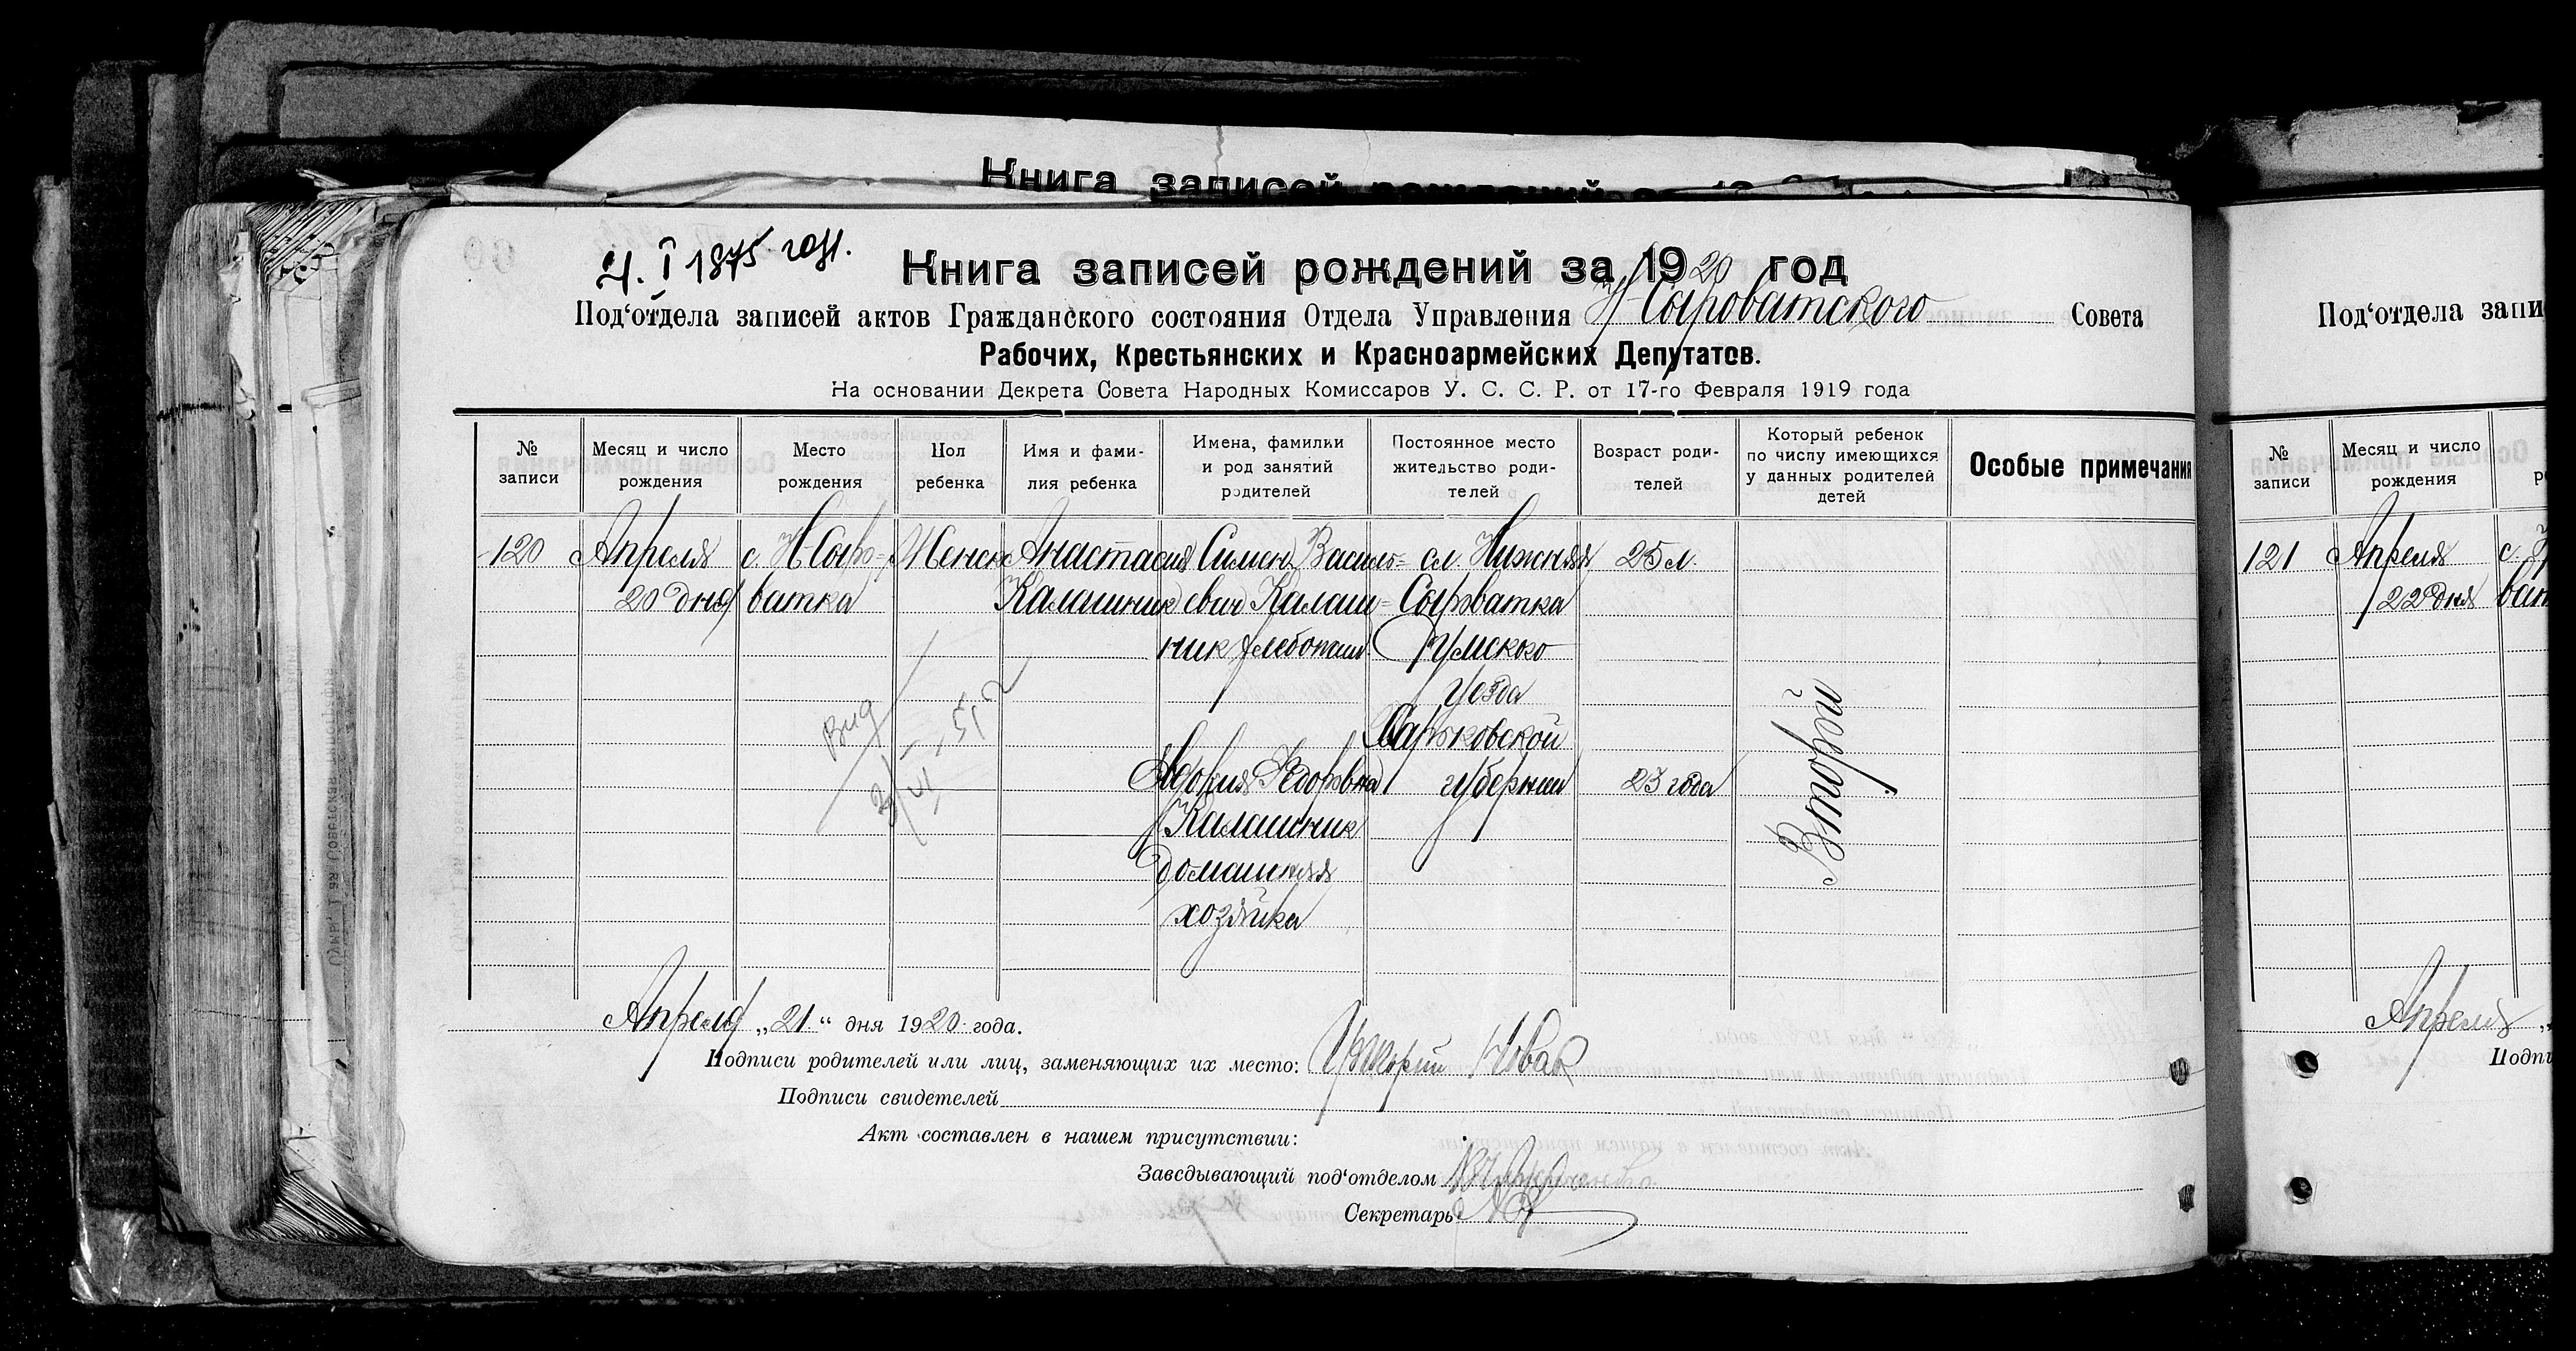 Книга записей
Ч. I 1875 год.
Книга записей рождений за 1920 год
Под‘отдела записей актов Гражданского состояния Отдела Управления Н-Сыроватского Совета
Рабочих, Крестьянских и Красноармейских Депутатов.
На основании Декрета Совета Народных Комиссаров У. С. С. Р. от 17-го Февраля 1919 года
№ записи
Месяц и число рождения
Место рождения
Пол ребенка
Имя и фами-
лия ребенка
Имена, фамилии
и род занятий
родителей
Постоянное место
жительство роди-
телей
Возраст роди-
телей
Который ребенок
по числу имеющихся
у данных родителей
детей
Особые примечания
120
Апреля
20 дня
с. Н-Сыро=
ватка
Женск
Анастасия
Калашник
Симеон Василь=
евич Калаш=
ник хлебопаш.
Сл. Нижняя
Сыроватка
Сумского
уезда
Харьковской
губернии
25 л.
Федоровна
Калашник
домашняя
хозяйка
23 года
Второй
Апреля „21“ дня 1920 года.
Подписи родителей или лиц, заменяющих их место: Новак
Подписи свидетелей
Акт составлен в нашем присутствии:
Заведывающий под‘отделом
Секретарь
Под‘отдела запи
№ записи
Месяц и число рождения
121
Апреля
22 дня
с.
Апреля „
Подпи